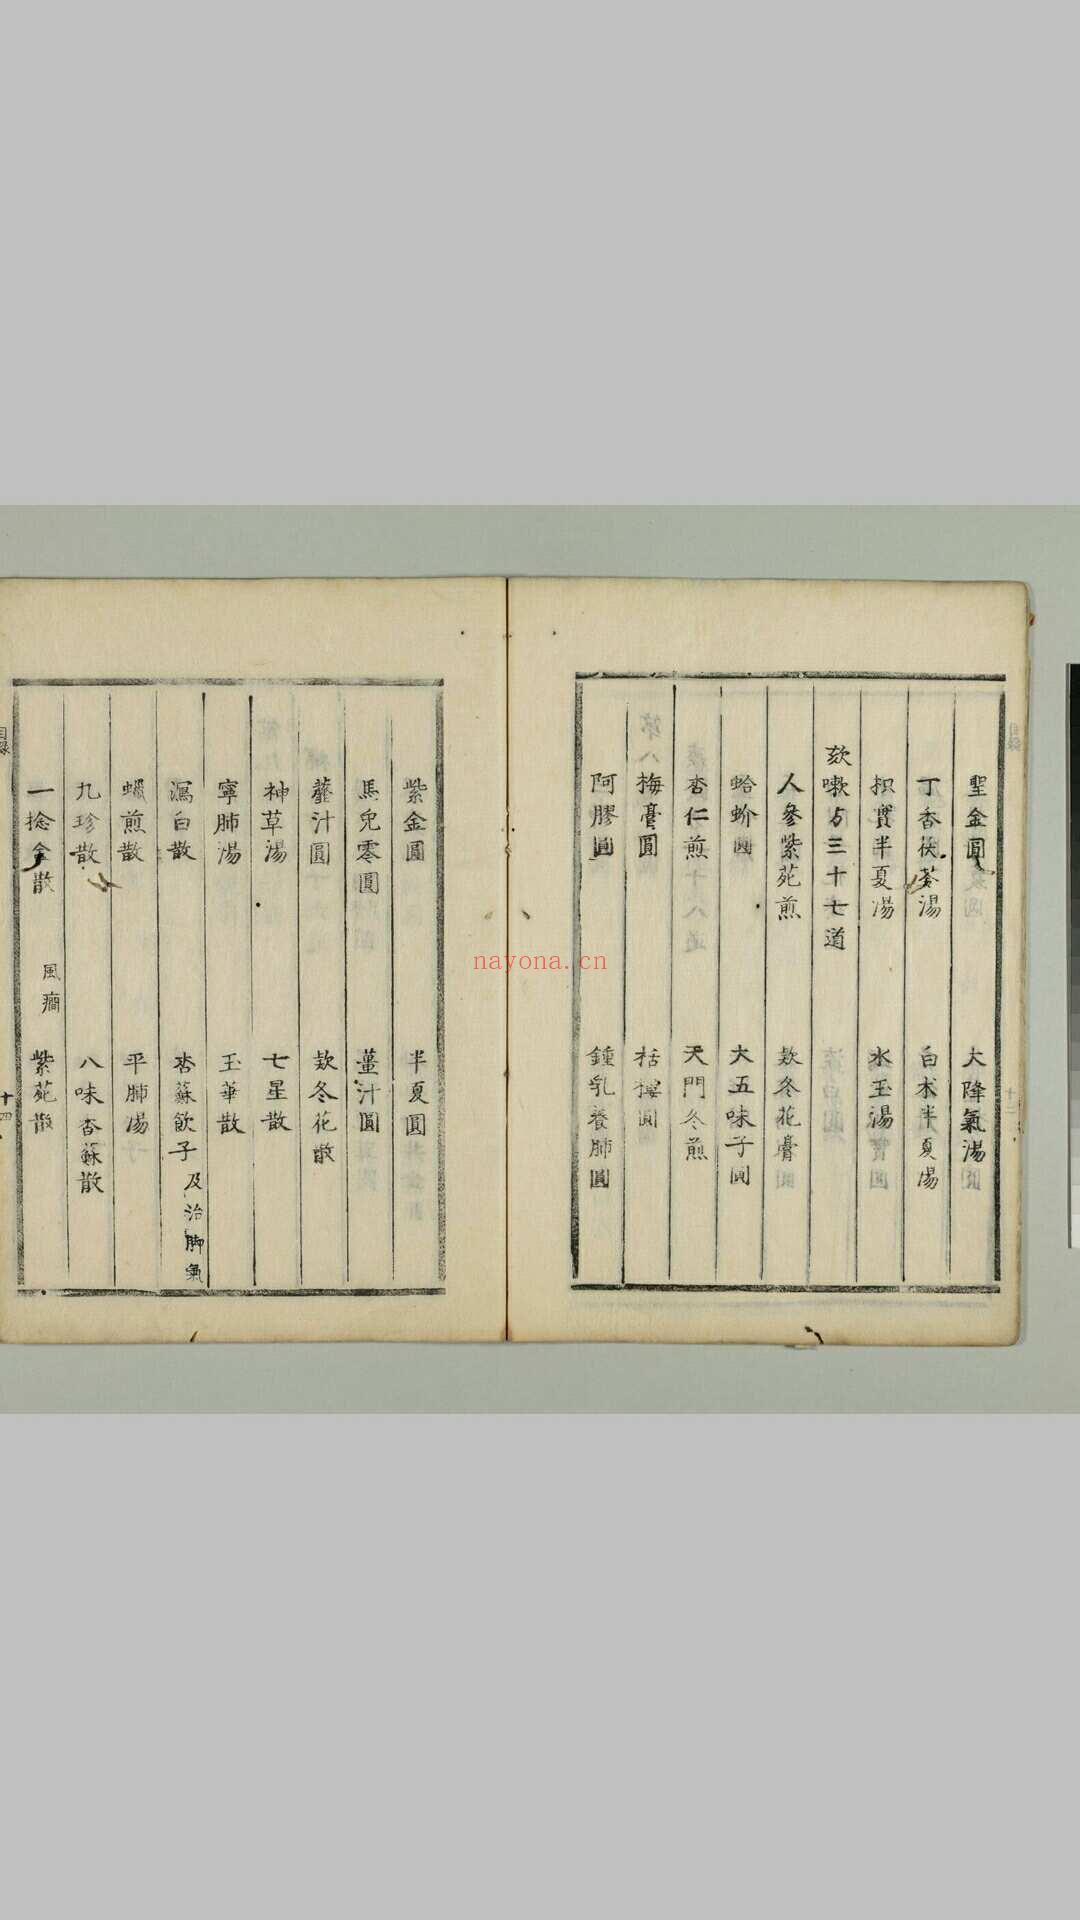 聖金圓　大降氣湯
丁香茯苓湯　白朮半夏湯
枳實半夏湯　水玉湯
欬嗽方三十七道
人參紫苑煎　欵冬花膏
蛤蚧圓　大五味子圓
杏仁煎　天門冬煎
梅膏圓　栝樓圓
阿膠圓　鍾乳養肺圓
紫金圓　半夏圓
馬兜零圓　薑汁圓
虀汁圓　欵冬花散
神草湯　七星散
寧肺湯　玉華散
瀉白散　杏蘇飲子及治脚氣
蠟煎散　平肺湯
九珍散　八味杏蘇散
一捻金散風癇　紫苑散
目録
十四
nayona.cn